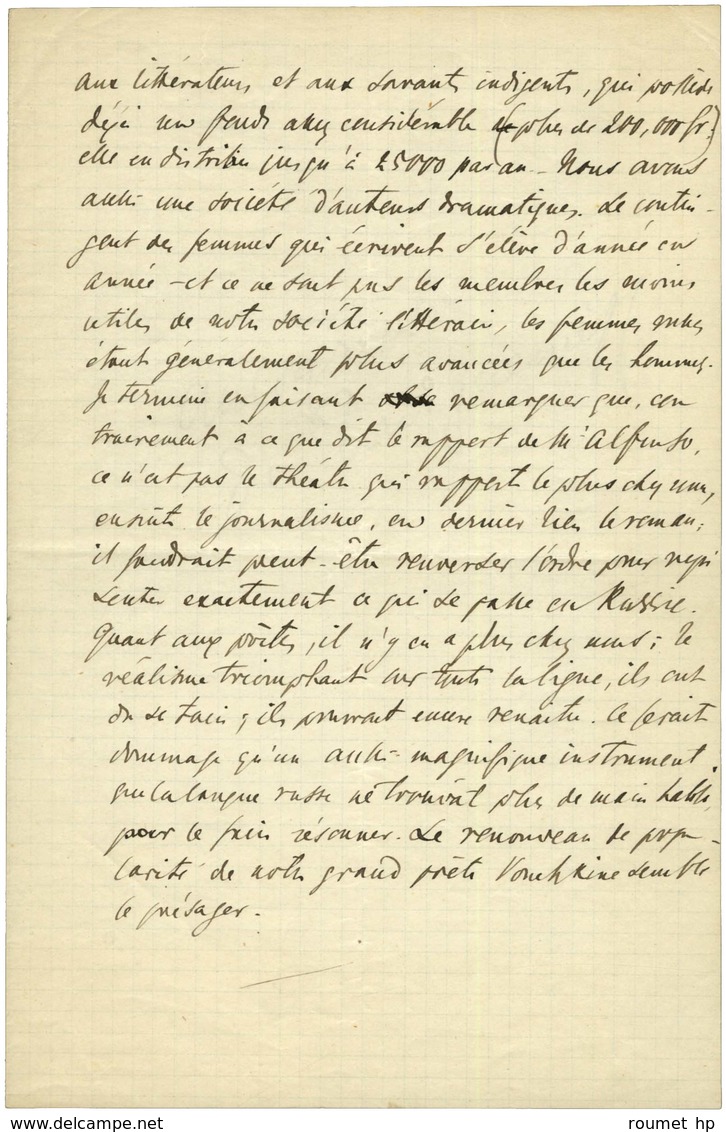 aux littérateurs et aux savants indigents, qui possède
déjà un fonds assez considérable (plus de 200,000 fr.)
elle en distribue jusqu'à 25000 par an – Nous avons
aussi une société d'auteurs dramatiques. Le contin-
gent des femmes qui écrivent s'élève d'année en
année – et ce ne sont pas les membres les moins
utiles de notre société littéraire, les femmes russes
étant généralement plus avancées que les hommes.
Je termine en faisant remarquer que, con
trairement à ce que dit le rapport de Mr Alfonso,
ce n'est pas le théâtre qui rapporte le plus chez nous,
ensuite le journalisme, en dernier lieu le roman;
il faudrait peut-être renverser l'ordre pour repré
senter exactement ce qui se passe en Russie.
Quant aux poètes, il n'y en a plus chez nous; le
réalisme triomphant sur toute la ligne, ils ont
du se taire; ils pourront encore renaître. Ce serait
dommage qu'un aussi magnifique instrument
que la langue russe ne trouvât plus de main habile
pour le faire résonner. Le renouveau de popu-
larité de notre grand poète Pouchkine semble
le présager.
roumet hp ©